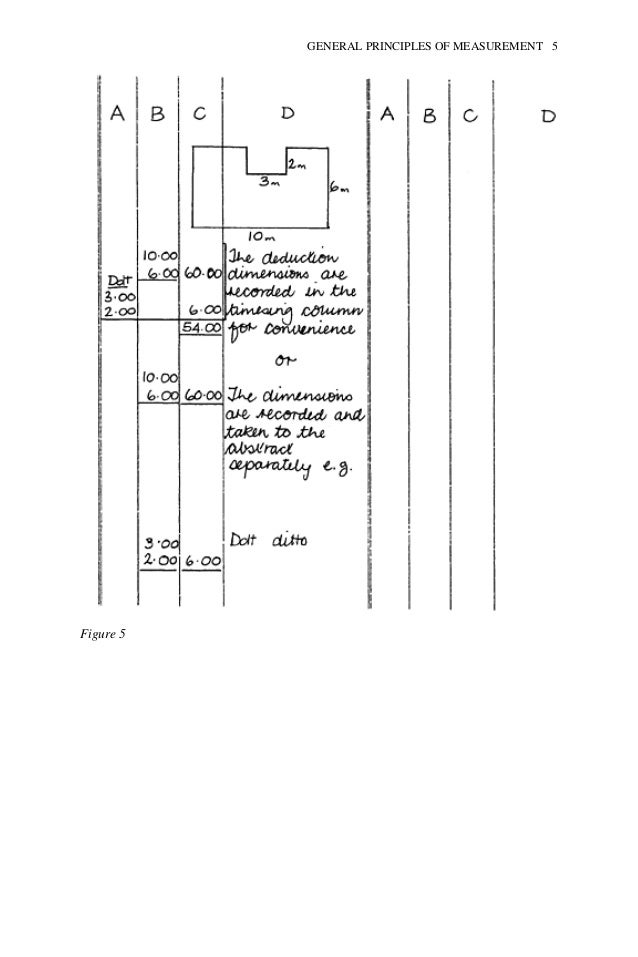 GENERAL PRINCIPLES OF MEASUREMENT 5
A B C D A B C D
2m
3m
6m
10m
10·00
6·00 60·00
Ddt
3·00
2·00 6·00
54·00
The deduction
dimensions are
recorded in the
timesing column
for convenience
or
10·00
6·00 60·00
The dimensions
are recorded and
taken to the
abstract
separately e.g.
3·00
2·00 6·00
Ddt ditto
Figure 5